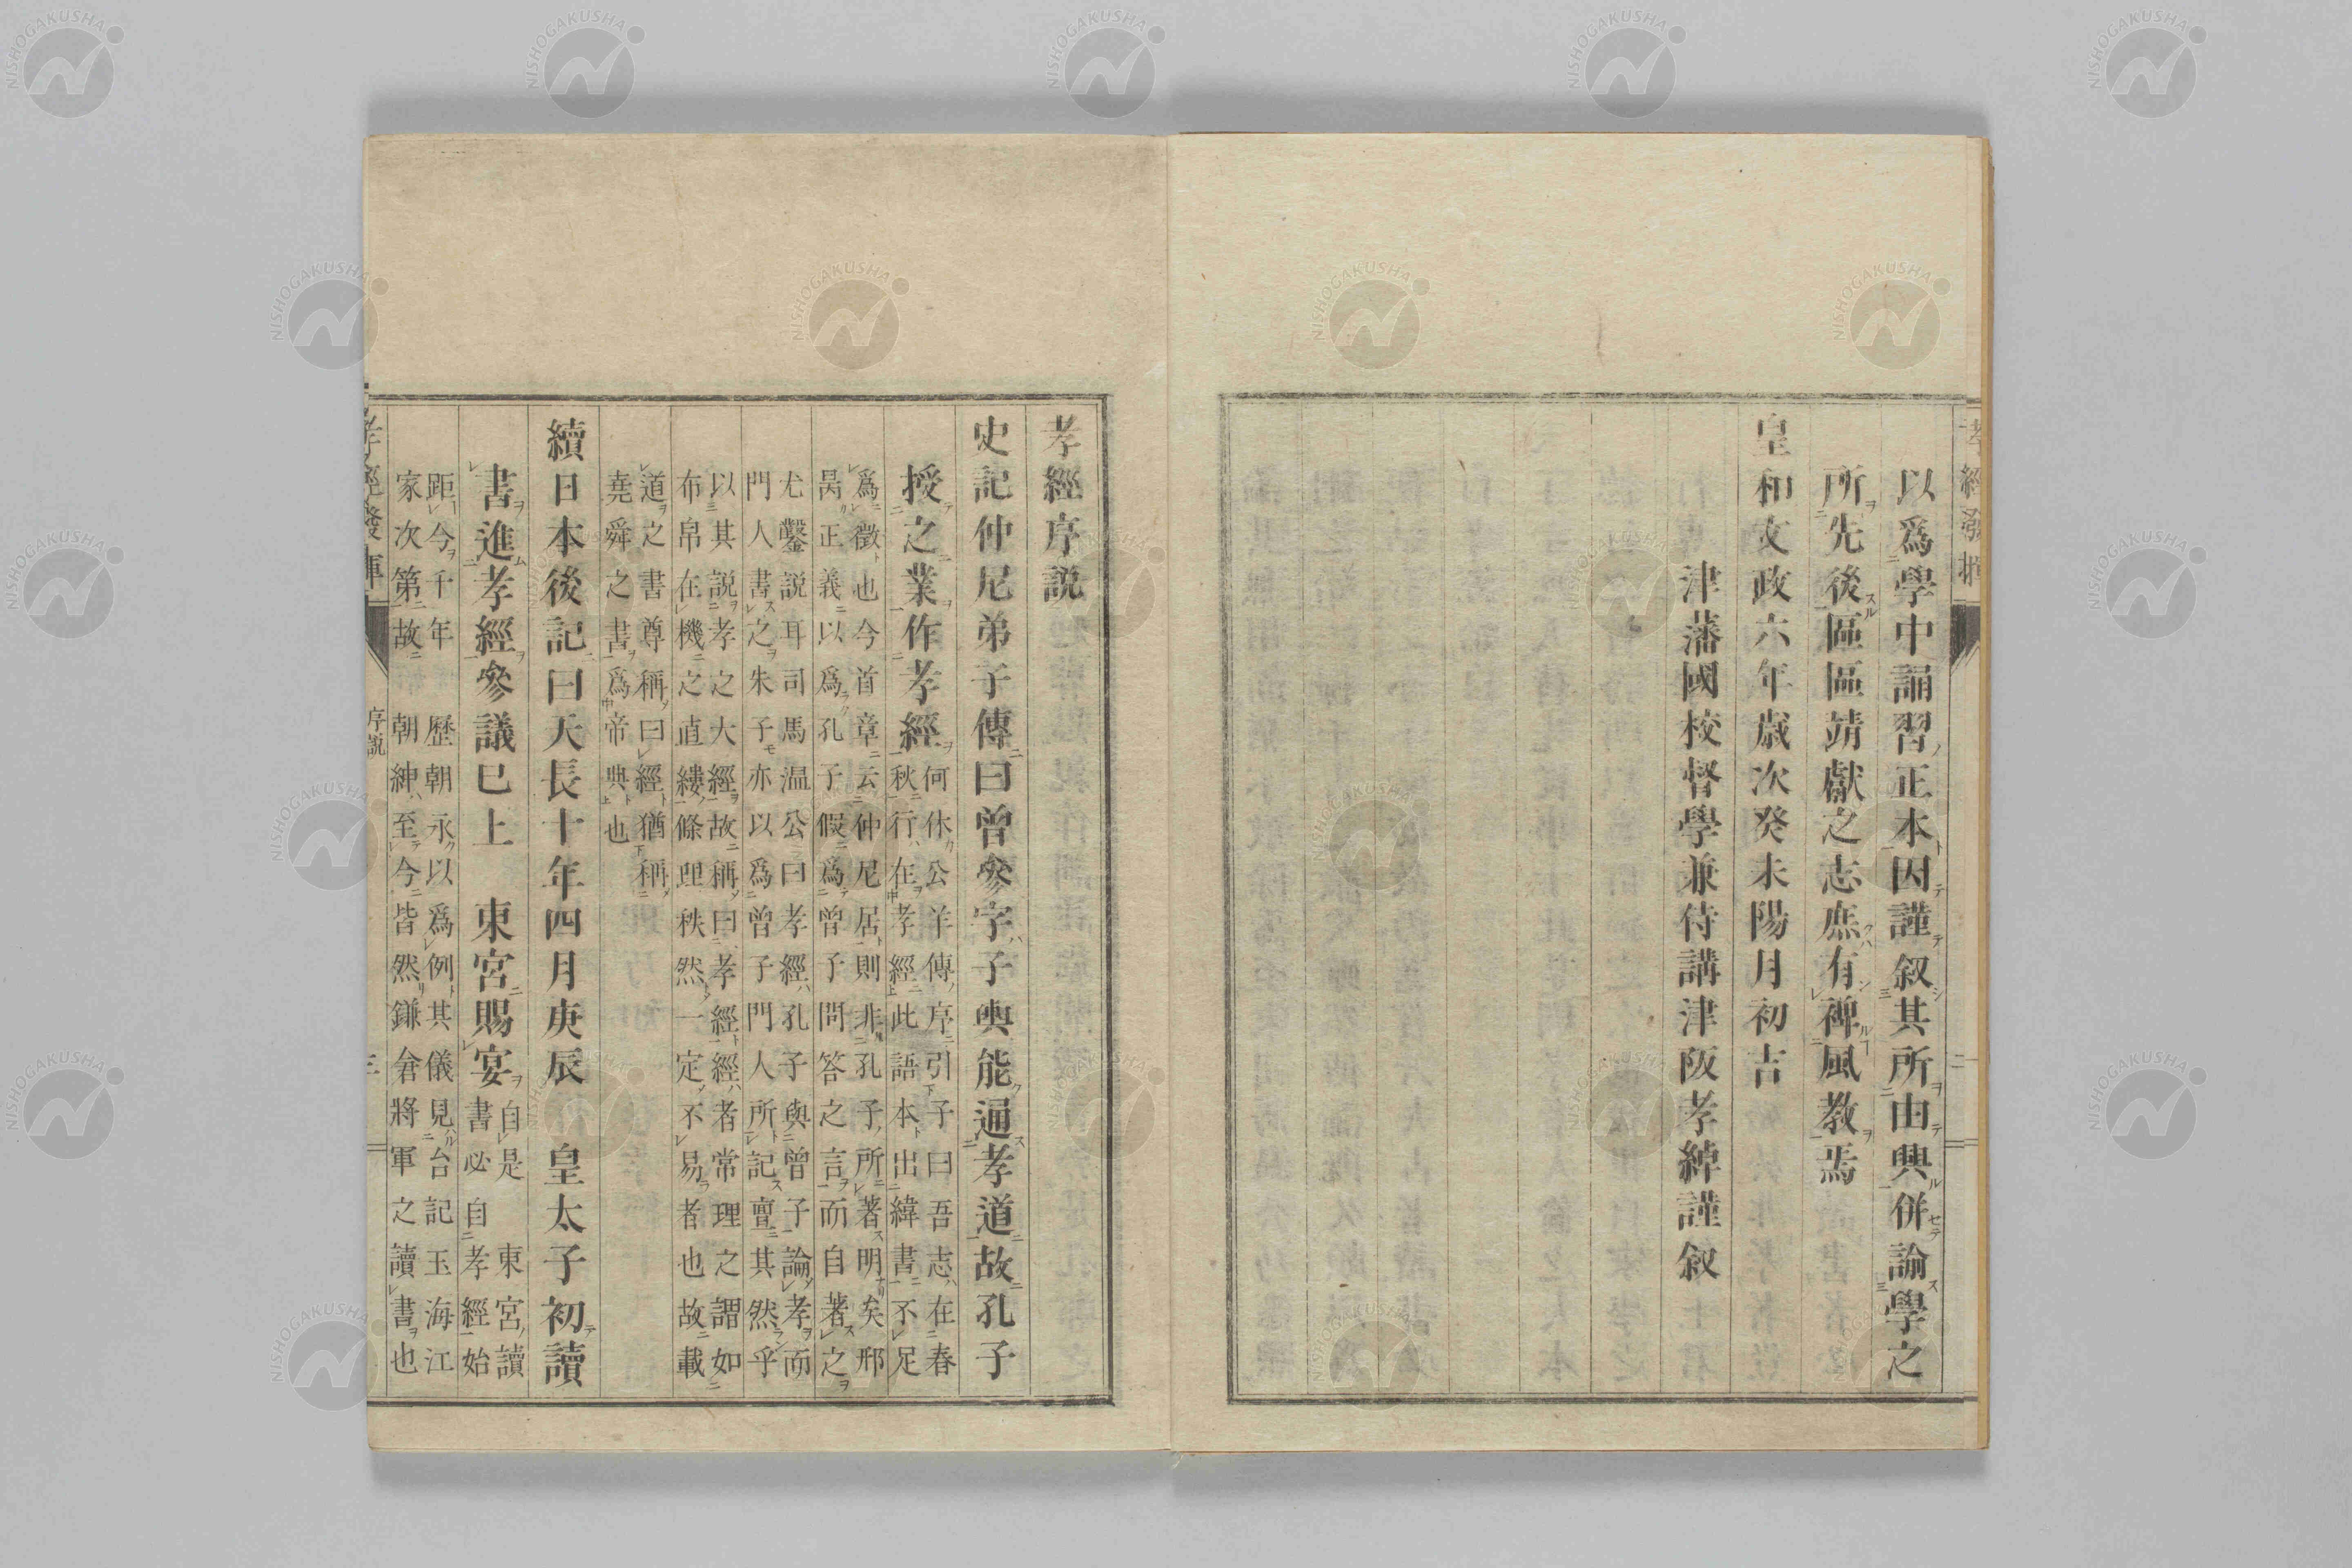 以爲學中誦習正本因謹叙其所由興併論學之
所先後區區靖獻之志庶有裨風教焉
皇和文政六年歲次癸未陽月初吉
津藩國校督學兼侍講津阪孝綽謹叙
孝經序説
史記仲尼弟子傳曰曾參字子輿能通孝道故孔子
授之業作孝經
何休公羊傳序引子曰吾志在春
秋行在孝經此語本出緯書不足
爲徵也今首章云仲尼居則非孔子所著明矣邢
昺正義以爲孔子假爲曾子問答之言而自著之
尤鑿説耳司馬温公曰孝經孔子與曾子論孝而
門人書之朱子亦以爲曾子門人所記亶其然乎
以其説孝之大經故稱曰孝經經者常理之謂如
布帛在機之直縷條理秩然一定不易者也故載
道之書尊稱曰經猶稱
堯舜之書爲帝典也
續日本後記曰天長十年四月庚辰 皇太子初讀
書進孝經參議已上 東宮賜宴
自是 東宮讀
書必自孝經始
距今千年 歷朝永以爲例其儀見台記玉海江
家次第故 朝紳至今皆然鎌倉將軍之讀書也
孝經發揮
序説
二
NISHOGAKUSHA